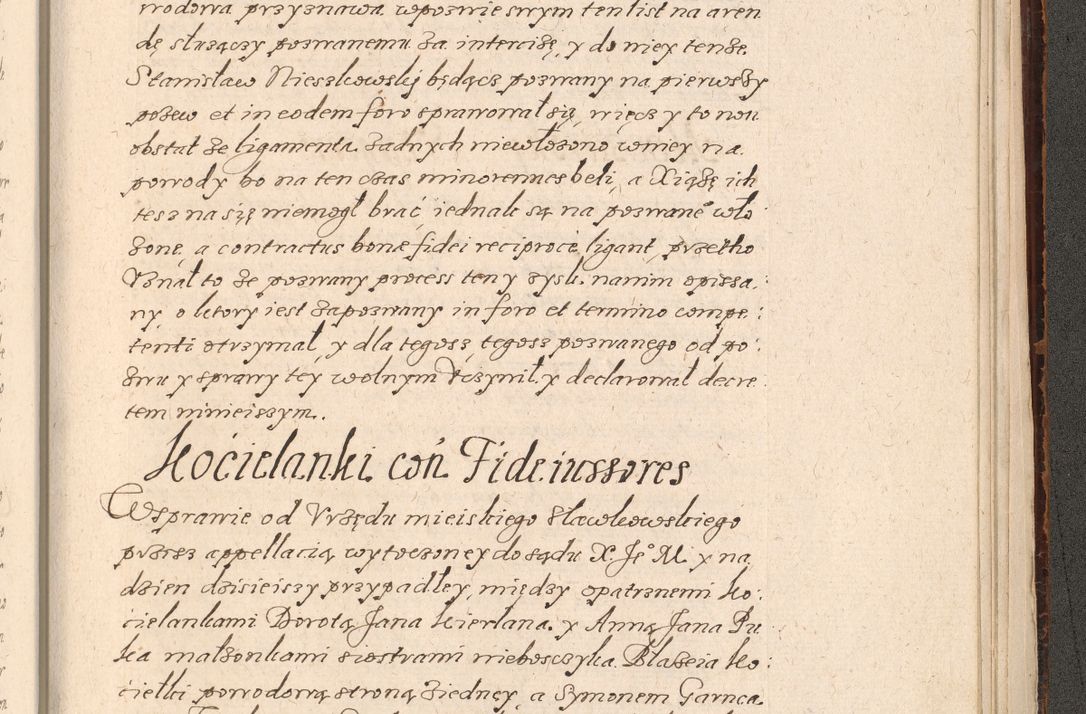 rrodowa przyznawa wpozwie swym ten list na aren
dę słuzączy pozwanemu za intercizę, y do niey tenże
Stanisław Nieszkowskij będącz pozwany na pierwszy
pozew et in eodem foro sprawował się, więcz y to non
obstat że ligamenta żadnych niewłożono wniey na
powody bo na ten czas minorennes beli, a Xiążę ich
tesz na się niemogł brać iednak są na pozwane wło
żone, a contractus bonæ fidei reciproce ligant, przetho
Vznał to że pozwany process ten y zysk nanim opissa
ny o ktory iest zapozwany in foro et termino compe:
tenti otrzymał, y dla tegosz, tegosz pozwanego od po:
zwu y sprawy tey wolnym Vczynił, y declarował decre
tem ninieiszym.
Kocielanki con Fideiussores
Wsprawie od Vrzędu mieiskiego sławkowskiego
przesz appellacią wytoczoney do sądu X. Je° M. y na
dzien dzisieiszy przypadłey, między opatrznemi Ko:
cielankami Dorotą Jana Kierlana y Anną Jana Pu
ka malżonkami siostrami nieboszczyka Błażeia Ko:
cielki powodową stroną ziedney, a Symonem Garnca